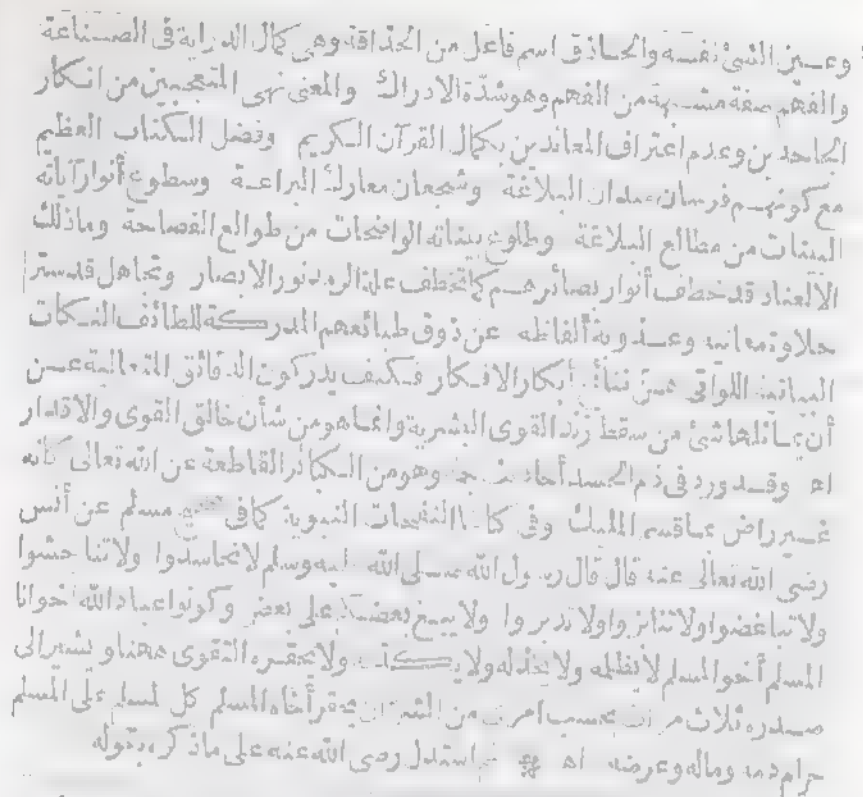 وعين الشئ نفسه والحاذق اسم فاعل من الحذاقة وهى كمال الدراية فى الصناعة
والفهم صفة مشبهة من الفهم وهو شدّة الادراك والمعنى نهى المتعجبين من انكار
الجاحدين وعدم اعتراف المعاندين بكمال القرآن الكريم وفضل الكتاب العظيم
مع كونهم فرسان ميدان البلاغة وشجعان معارك البراعة وسطوع أنوار آياته
البينات من مطالع البلاغة وطلوع بيناته الواضحات من طوالع الفصاحة وماذلك
الالعناد قد خطف أنوار بصائرهم كما تخطف علة الرمد نور الابصار وتجاهل قد ستر
حلاوة معانيه وعذوبة ألفاظه عن ذوق طبائعهم المدركة للطائف النكات
اللواتى هنّ أبكار الافكار فكيف يدركون الدقائق المتعالية عن
أن يماثلها شئ من سقط زند القوى البشرية وانما هو من شأن خالق القوى والاقدار
اه وقد ورد فى ذم الحسد أحاديث وهو من الكبائر القاطعة عن الله تعالى كأنه
غير راض بما قسم المليك وفى النفحات النبوية كما فى مسلم عن أنس
رضى الله تعالى عنه قال قال رسول الله صلى الله عليه وسلم لا تحاسدوا ولا تناجشوا
ولا تباغضوا ولا تدابروا ولا يبع بعضكم على بعض وكونوا عباد الله اخوانا
المسلم أخو المسلم لا يظلمه ولا يخذله ولا يكذبه ولا يحقره التقوى ههنا ويشير الى
صدره ثلاث مرات بحسب امرئ من الشر ان يحقر أخاه المسلم كل المسلم على المسلم
حرام دمه وماله وعرضه اه ثم استدل رضى الله عنه على ماذكره بقوله